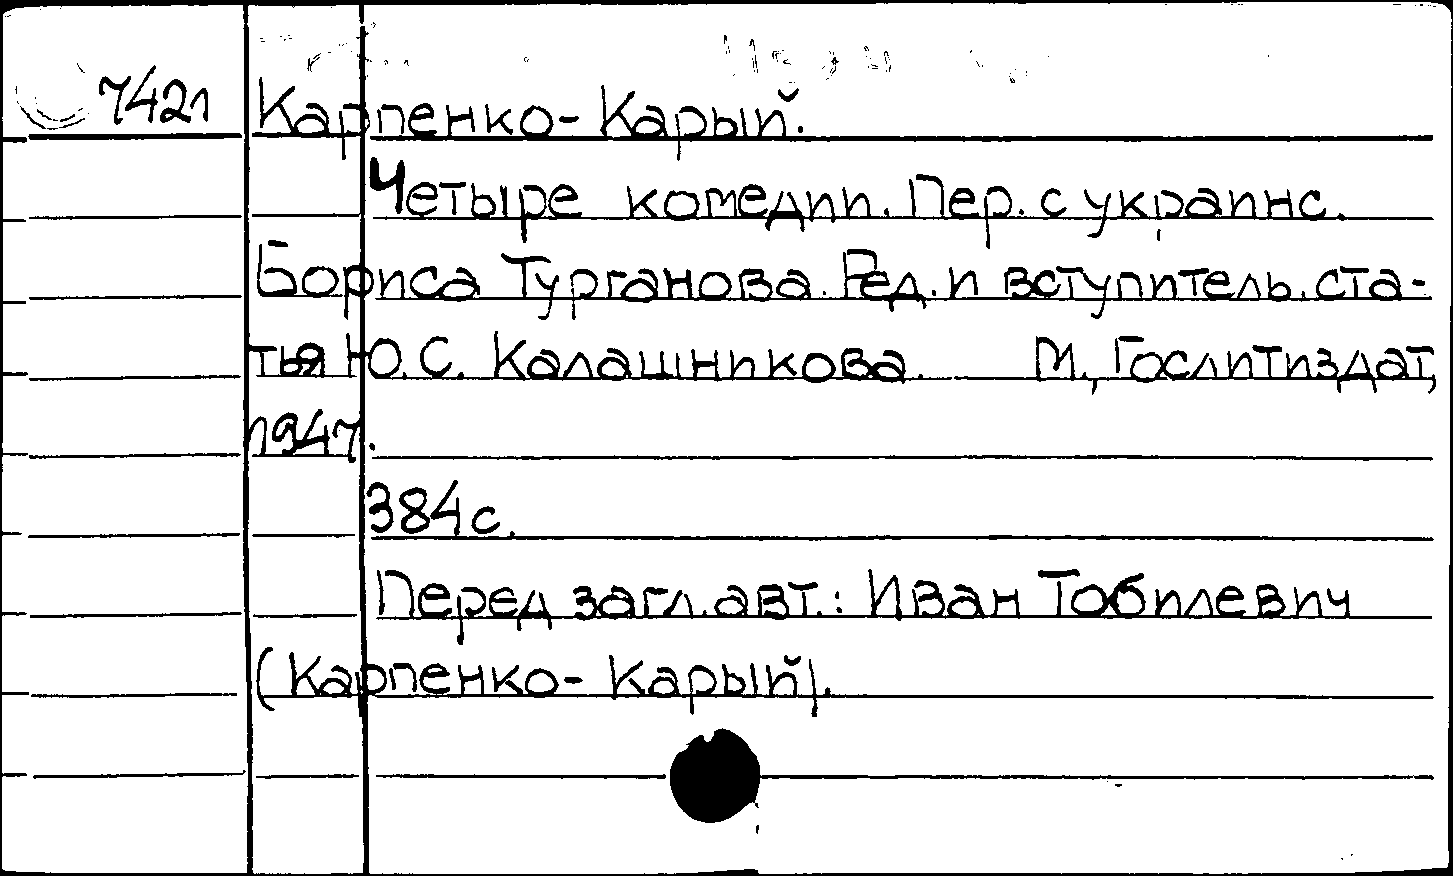 7421 Карпенко-Карый.
Четыре комедии. Пер. с украинс.
Бориса Турганова. Ред. и вступитель. ста-
тья Ю.С. Калашникова. М., Гослитиздат,
1947.
384 с.
Перед загл. авт.: Иван Тобилевич
(Карпенко-Карый).